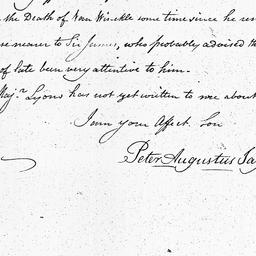 the Death of Van Winkle some time since he
nearer to Sir James, who probably advised
of late been very attentive to him.
Maj.r Lyons has not yet written to me about
I am your Affect. Son
Peter Augustus